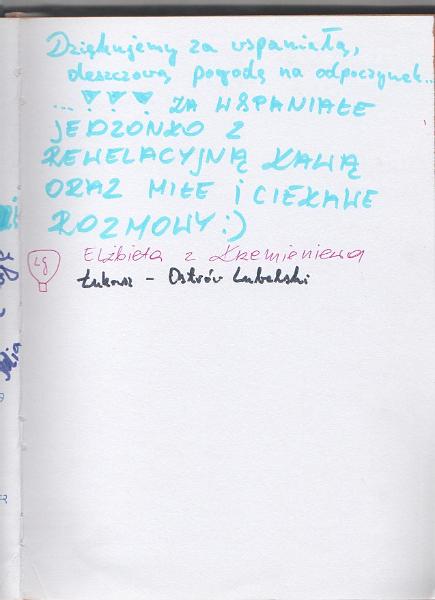 Dziękujemy za wspaniałą,
deszczową pogodę na odpoczynek...
...!!! ZA WSPANIAŁE
JEDZONKO Z
REWELACYJNĄ KAWĄ
ORAZ MIŁE I CIEKAWE
ROZMOWY:)
Elżbieta z Krzemieniewa
Łukasz - Ostrów Lubelski